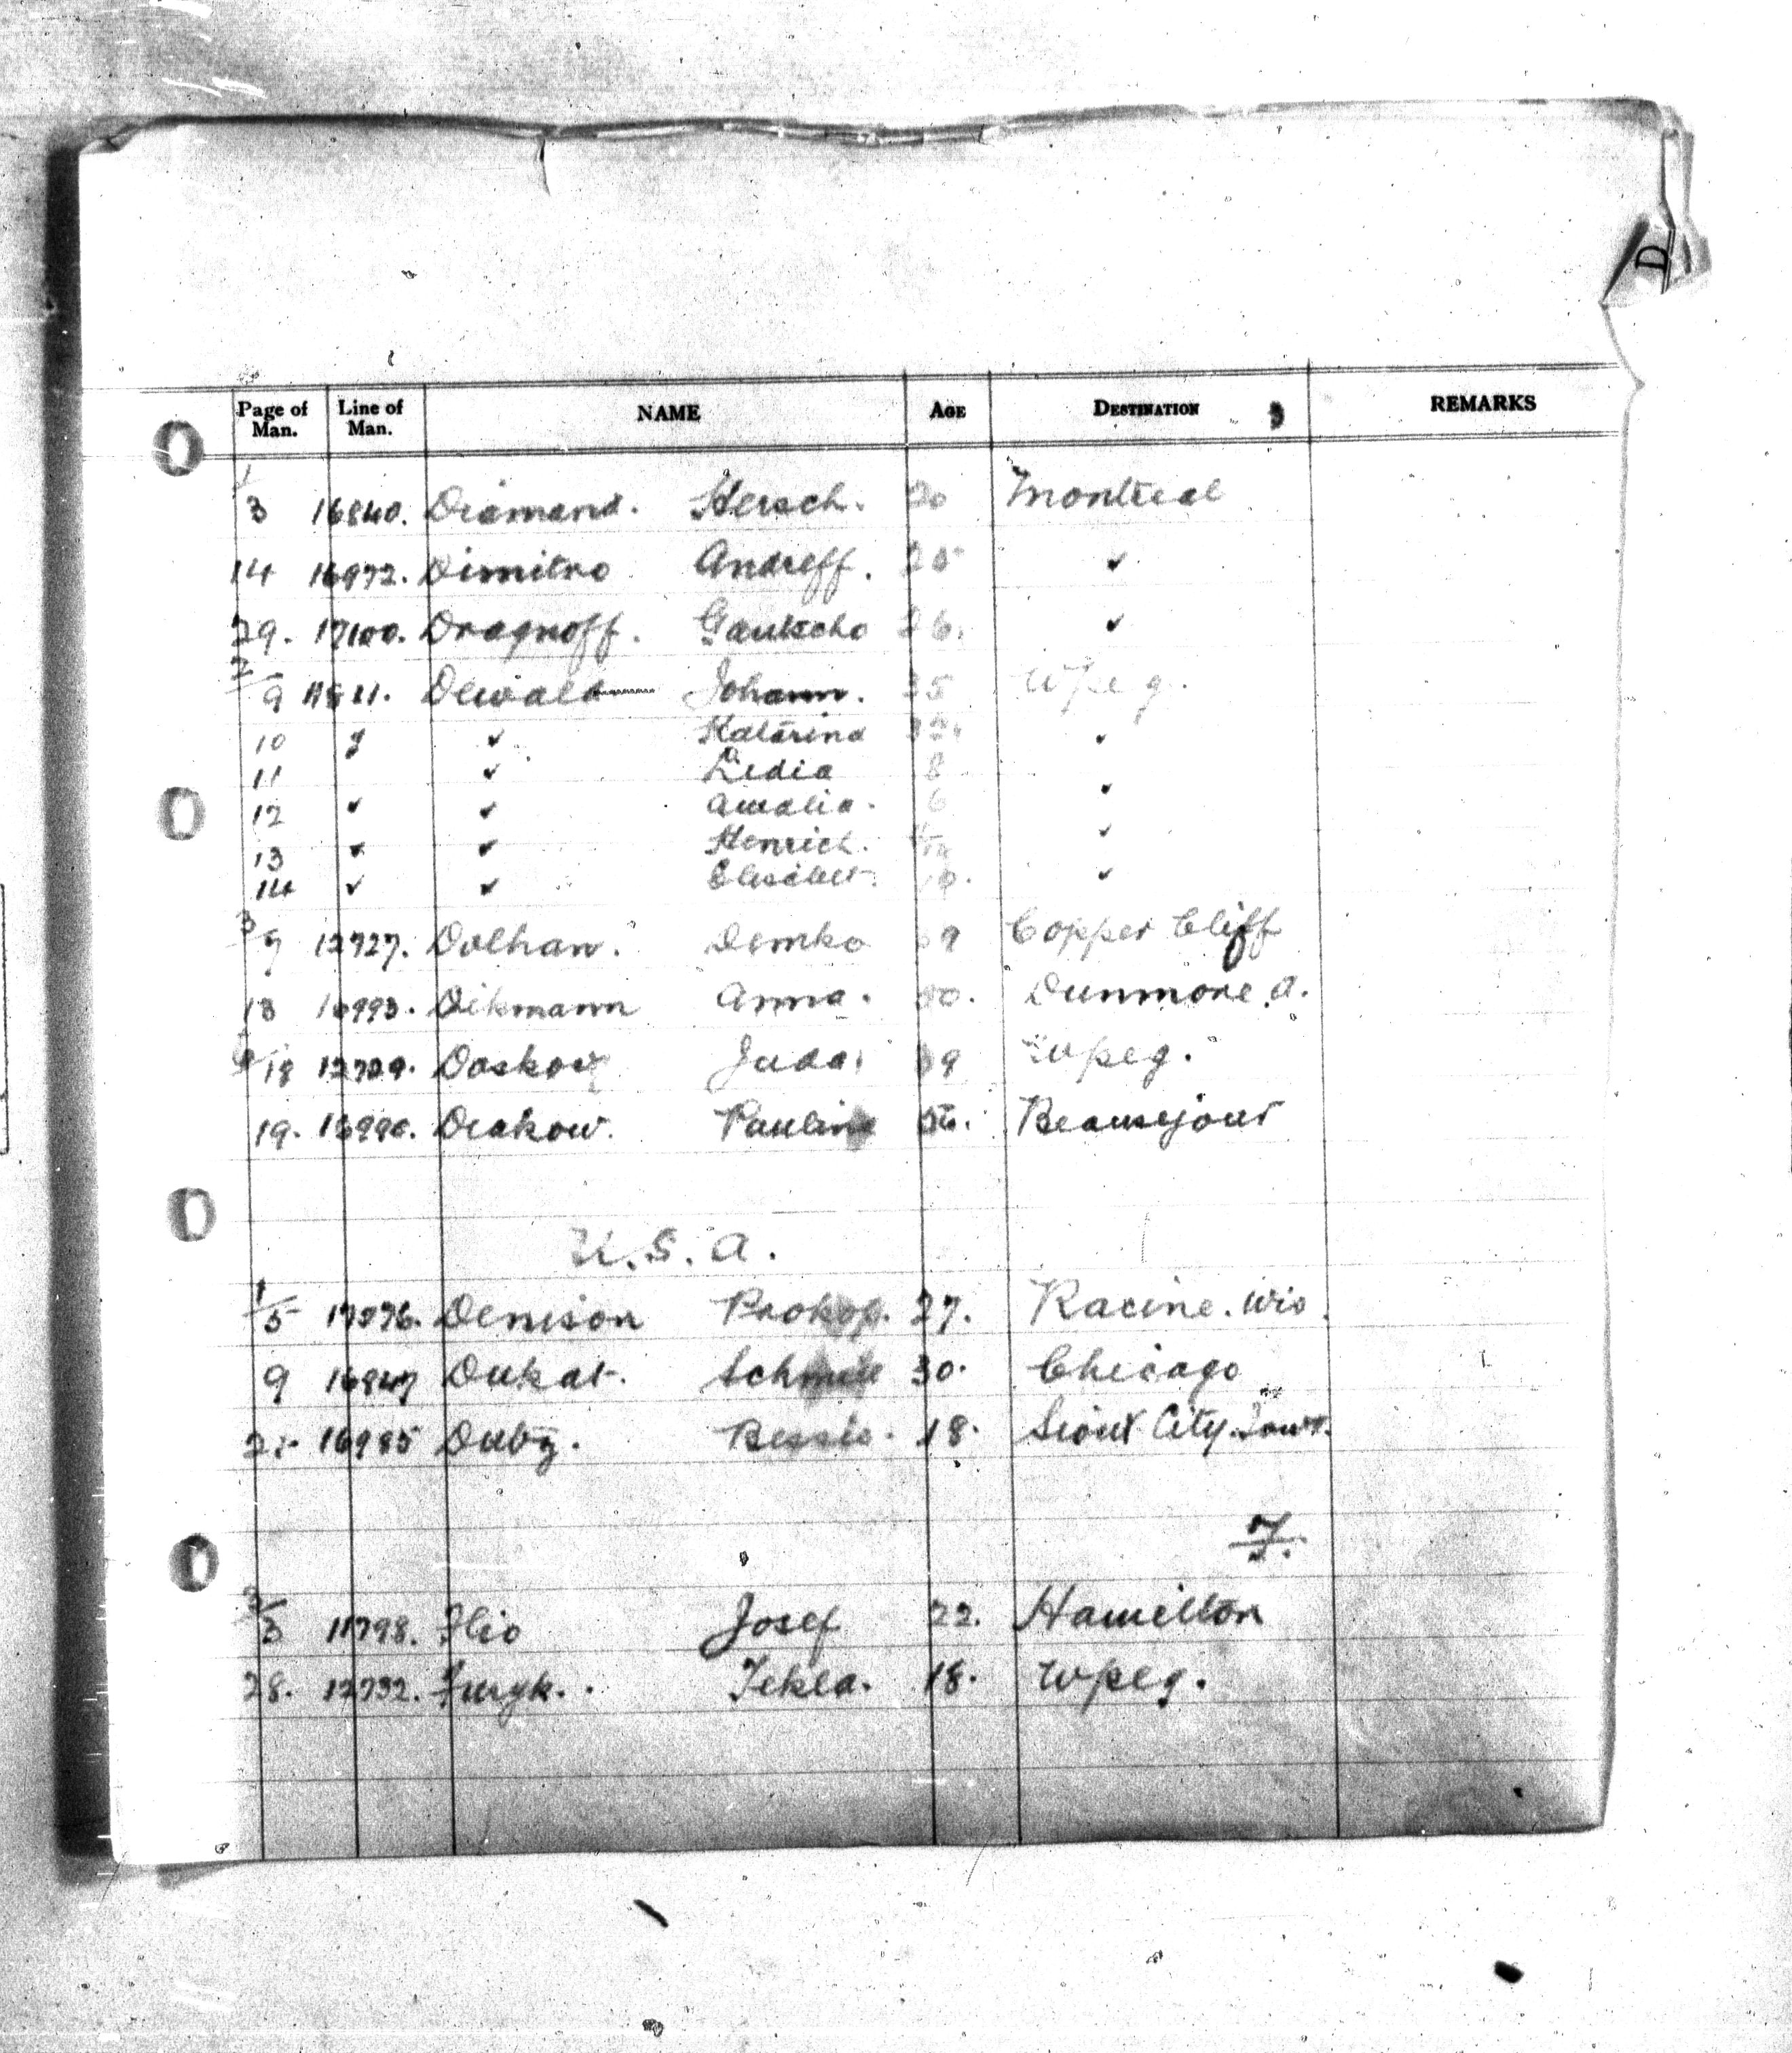 D
Page of Man. Line of Man. NAME AGE DESTINATION REMARKS
1/3 16840. Diamand. Hersch. 20 Montreal
14 16972. Dimitro Andreff. 25 ✓
29. 17100. Dragnoff. Gautscho 26. ✓
2/9 Dewald Johann. 35 Wpeg.
10 ✓ Katarina ✓
11 ✓ Lidia 8
12 ✓ ✓ Amalia. 6 ✓
13 ✓ ✓ Henrich. ✓
14 ✓ ✓ Elisabet. ✓
3/ 12727. Dolhan. Demko Copper Cliff
13 Dikmann Anna. Dunmore. A.
18 12729. Juda. Wpeg.
19. Drakow. Pauline Beausejour
U.S.A.
1/5 Denison Prokop. 27. Racine. Wis.
9 16847 Dukat. 30. Chicago
16985 Duby. Bessie. 18. Sioux City. Iowa.
F.
11798. Ilio Josef 22. Hamilton
28. 12732. Furyk. Tekla. 18. Wpeg.